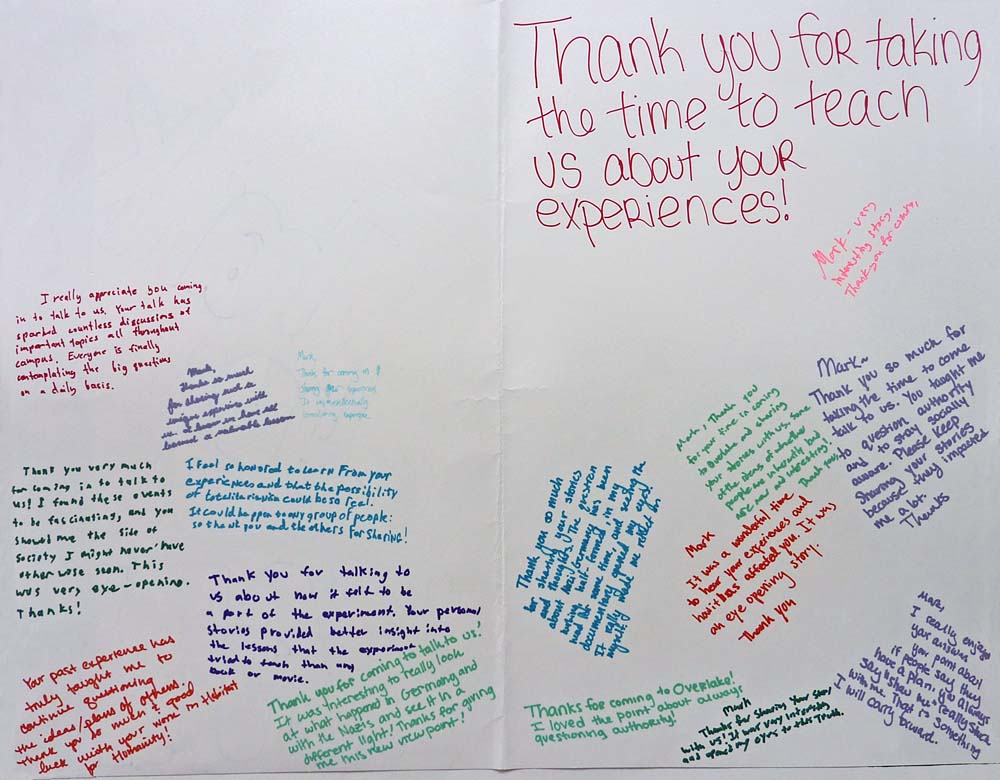 Thank you for taking
the time to teach
us about your
experiences!
Mark - very
interesting story.
Thank you for coming,
I really appreciate you coming
in to talk to us. Your talk has
sparked countless discussions of
important topics all throughout
campus. Everyone is finally
contemplating the big questions
on a daily basis.
Mark,
thanks so much
for sharing such a
unique experience with
us. I know we have all
learned a valuable lesson
Mark,
Thank you very much
for coming in to talk to
us! I found these events
to be fascinating, and you
showed me the side of
society I might never have
other wose seen. This
was very eye-opening.
Thanks!
I feel so honored to learn from your
experiences and that the possibility
of totalitarianism could be so real.
It could happen to any group of people:
so thank you and the others for sharing!
Thank you for talking to
us about how it felt to be
a part of the experiment. Your personal
stories provided better insight into
the lessons that the experiment
tried to teach than any
book or movie.
Your past experience has
truly taught me to
continue questioning
the ideas/plans of others.
Thank you so much & good
luck with your work in Habitat
for Humanity!
Thank you for coming to talk to us!
It was interesting to really look
at what happened in Germany and
with the Nazis and see it in a
different light! Thanks for giving
me this new view point!
Thank you so much
for sharing your stories
and thoughts. The question
about Nazi Germany has been
lurking half formed, in my
mind for some time, and seeing the
documentary opened my eyes!
It really made me reflect on
myself
Mark, Thank you
for your time in coming
to Overlake and sharing
your stories with us. Some
of the ideas of whether
people are inherently bad
are new and interesting.
Thank you,
Mark
It was a wonderful time
to hear your experiences and
how it has affected you. It was
an eye opening story.
Thank you
Mark~
Thank you so much for
taking the time to come
talk to us. You taught me
to question authority
and to stay socially
aware. Please keep
sharing your stories
because they truly impacted
me a lot.
Thanks
Mark,
I really enjoyed
your answer
if people say they
have a plan, you always
say "show me" really stuck
with me. That is something
I will carry forward.
Thanks for coming to Overlake!
I loved the point about always
questioning authority!
Mark
Thanks for sharing your story
with us! It was very interesting
and opened my eyes to the truth.